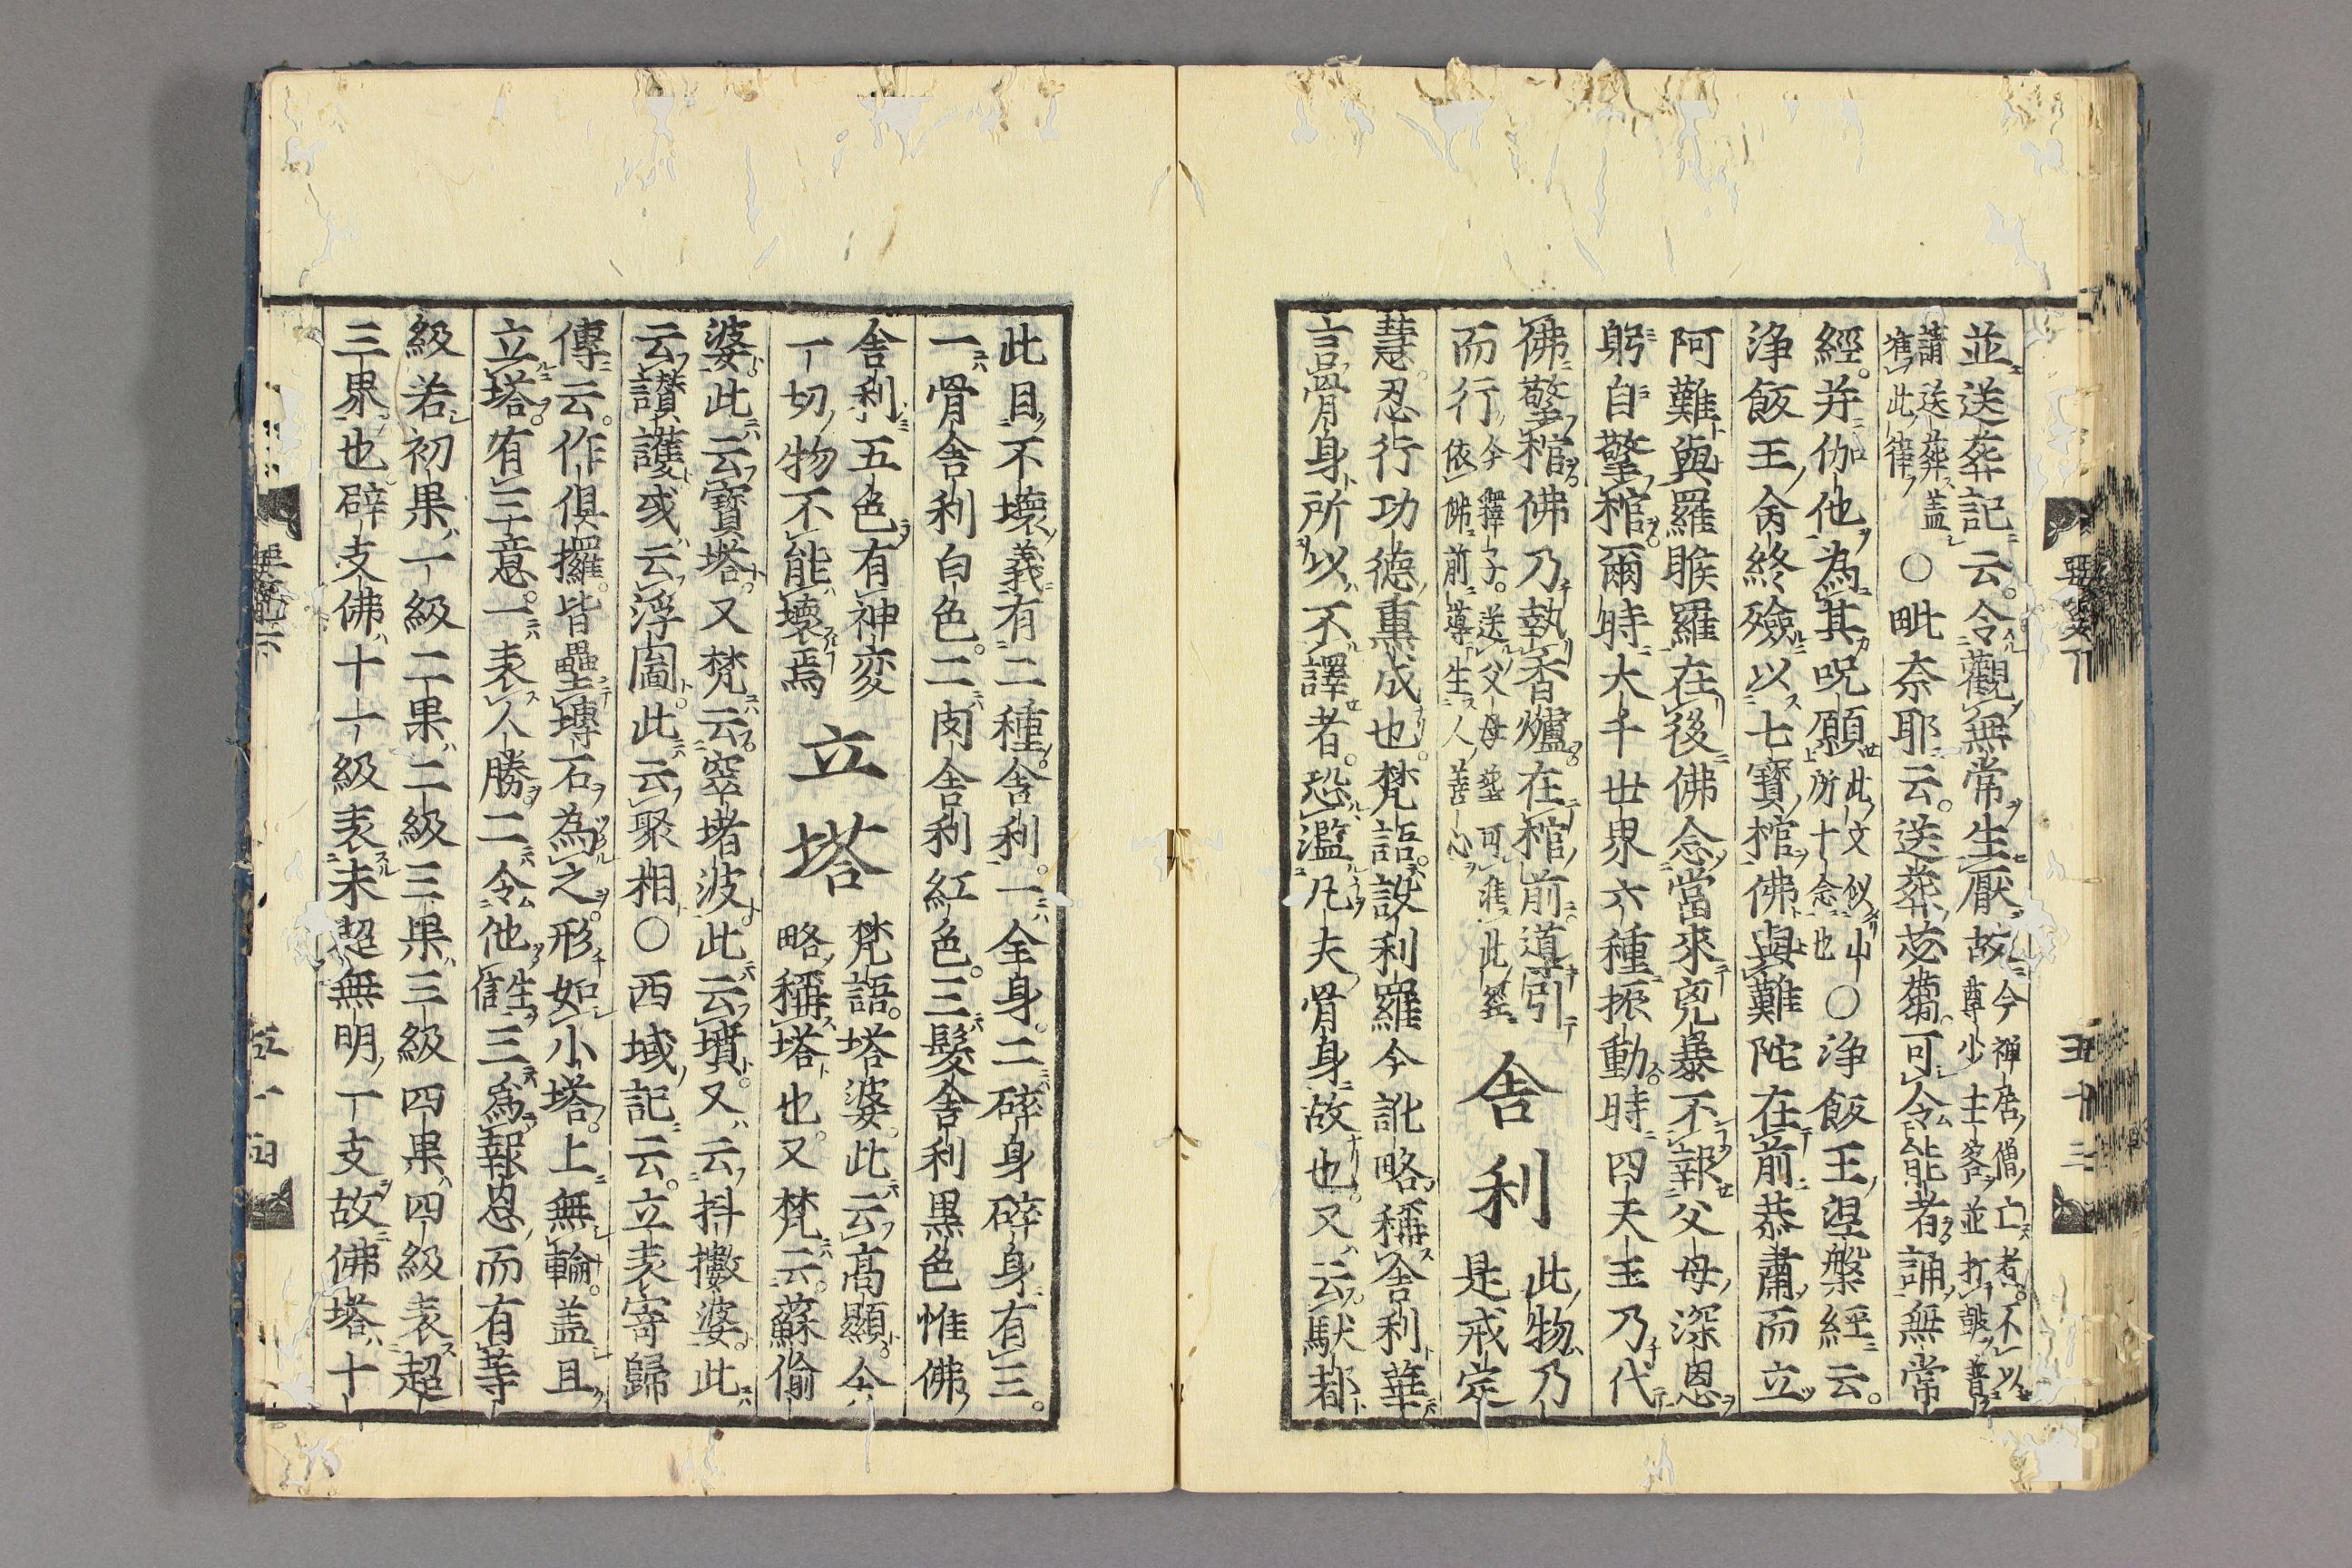 並送葬記云。令觀無常生厭故今禪居僧亡者。不以尊少主客並打皷普
請送葬盖準此律○毗奈耶云。送葬苾蒭可令能者誦無常
經。并伽他為其呪願此文似山所十念也○浄飯王涅槃經云。
浄飯王命終殮以七寶棺佛與難陀在前恭肅而立
阿難與羅睺羅在後佛念當來兇暴不報父母深恩
躬自擎棺爾時大千世界六種振動時四天王乃代
佛擎棺佛乃執香爐在棺前導引
而行今釋子。送父母塟可準此經依佛前導生人善心
舍利
此物乃
是戒定
慧忍行功德熏成也。梵語。設利羅今訛略稱舍利華
言骨身所以不譯者。恐濫凡夫骨身故也。又云馱都
五十三
此目不壞義有二種舍利。一全身。二碎身碎身有三。
一骨舍利白色。二肉舍利紅色。三髮舍利黒色惟佛
舍利五色有神変
一切物不能壞焉
立塔
梵語。塔婆。此云高顯。今
略稱塔也。又梵云。蘇偷
婆此云寶塔又梵云窣堵波此云墳又云抖擻婆此
云讃護或云浮圖此云聚相○西域記云。立表寄歸
傳云。作俱攞。皆壘塼石為之形如小塔。上無輪盖且
立塔。有三意。一表人勝二令他生信三為報恩而有等
級若初果一級二果二級三果三級四果四級表超
三界也辟支佛十一級表未超無明一支故佛塔十